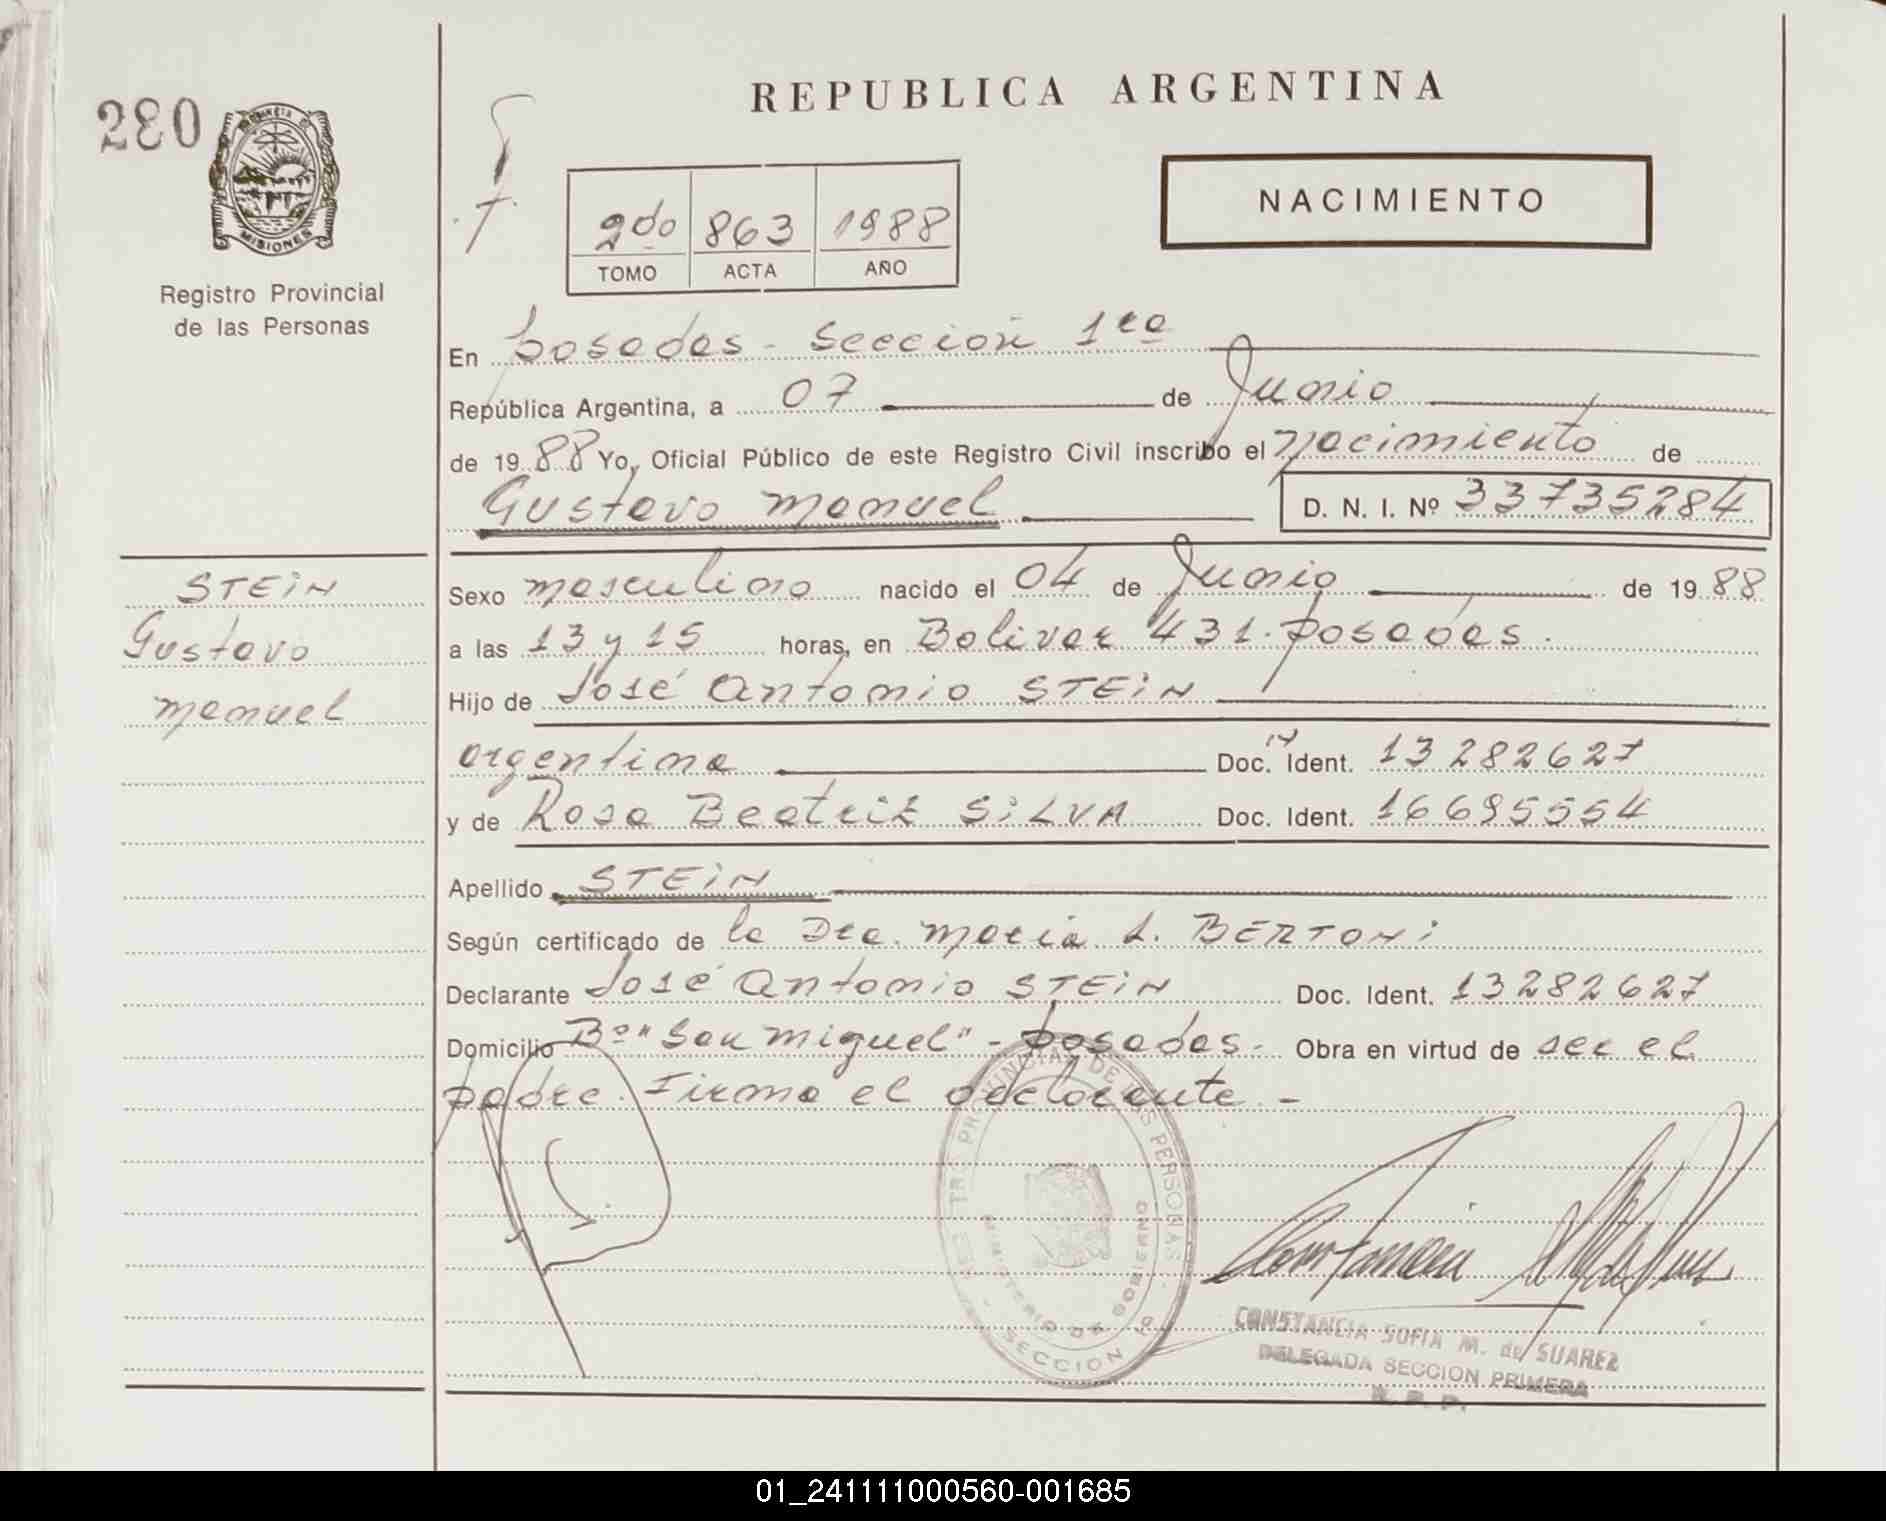 REPUBLICA ARGENTINA
280
PROVINCIA DE
MISIONES
Registro Provincial
de las Personas
2do 863 1988
TOMO ACTA AÑO
NACIMIENTO
En Posadas - Sección 1ra
República Argentina, a 07 de Junio
de 1988 Yo, Oficial Público de este Registro Civil inscribo el nacimiento de
Gustavo Manuel D. N. I. Nº 33735284
STEiN
Gustavo
Manuel
Sexo masculino nacido el 04 de Junio de 1988
a las 13 y 15 horas, en Bolivar 431. Posadas.
Hijo de José Antonio STEiN
argentina Doc. Ident. 13282627
y de Rosa Beatriz SiLVA Doc. Ident. 16695554
Apellido STEiN
Según certificado de la Dra. Maria L. BERTONi
Declarante José Antonio STEiN Doc. Ident. 13282627
Domicilio Bº "San Miguel" - Posadas - Obra en virtud de ser el
padre. Firma el declarante. -
PROVINCIAL DE LAS PERSONAS
MINISTERIO DE GOBIERNO
SECCION
CONSTANCIA SOFIA M. de SUAREZ
DELEGADA SECCION PRIMERA
R. P. P.
01_241111000560-001685